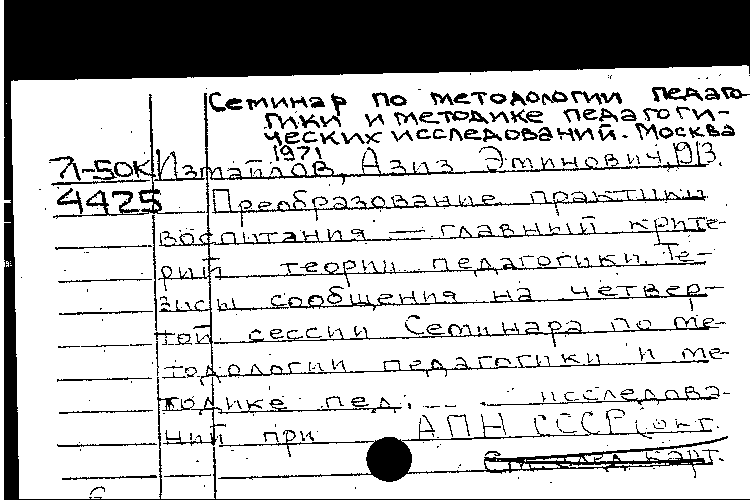 Семинар по методологии педаго-
гики и методике педагоги-
ческих исследований. Москва
1971
Л-50К Измайлов, Азиз Эминович,
4425 Преобразование практики
воспитания — главный крите-
рий теории педагогики. Те-
зисы сообщения на четвер-
той сессии Семинара по ме-
тодологии педагогики и ме-
тодике пед. исследова-
ний при АПН СССР (окт.
См. след. карт.